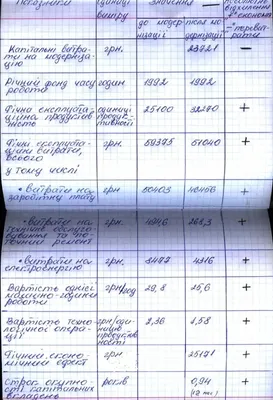 Показники одиниці виміру значення
до модернізації після модернізації
Капітальні витрати на модернізацію грн. — 23721 —
Річний фонд часу роботи годин 1992 1992
Річна експлуатаційна продуктивність одиниці продуктивності 25100 32270 +
Річні експлуатаційні витрати, всього грн. 59375 51040 +
у тому числі
• витрати на заробітну плату грн. 50403 +
• витрати на технічне обслуговування та поточний ремонт грн. +
• витрати на електроенергію грн. +
Вартість однієї машино-години роботи грн/год 29,8 25,6 +
Вартість технологічної операції грн/одиницю продуктивності 2,36 1,58 +
Річний економічний ефект грн 25171 +
Строк окупності капітальних вкладень років 0,94 +